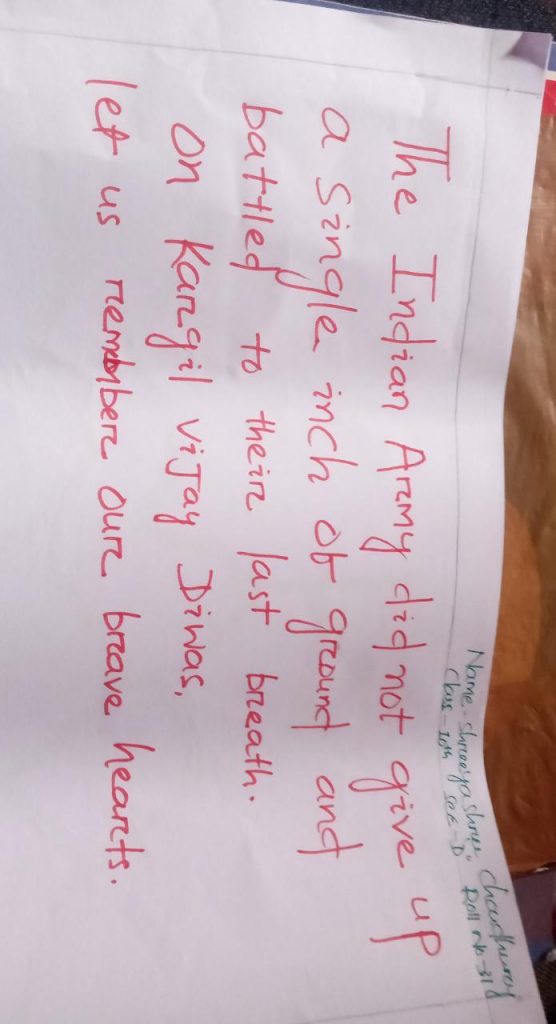 Name - Shreeyashree Choudhuray
Class - 10th Sec - D Roll No - 31
The Indian Army did not give up
a single inch of ground and
battled to their last breath.
On Kargil vijay Diwas,
let us remember our brave hearts.